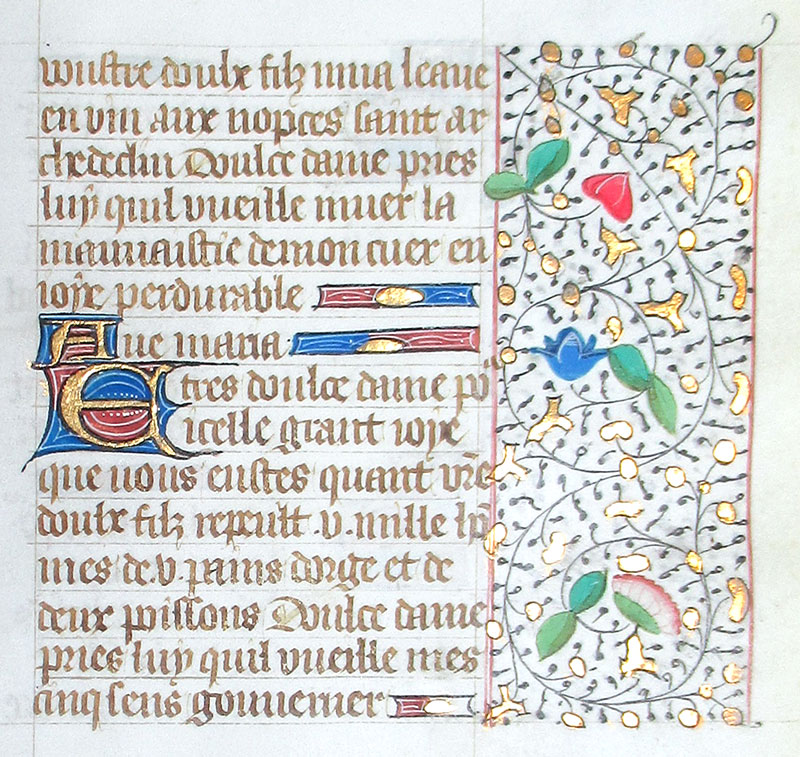 vostre doulx filz mua leaue
en vin aux nopces saint ar
chedeclin Doulce dame pries
luy quil vueille muer la
mauuaistie demon cuer en
ioye perdurable
Aue maria
E tres doulce dame po͛
icelle grant ioye
que uous eustes quant vr̃e
doulx filz repeutt .v. mille hõ
mes de .v. pains dorge et de
deux poissons Doulce dame
pries luy quil vueille mes
cinq sens gouuerner